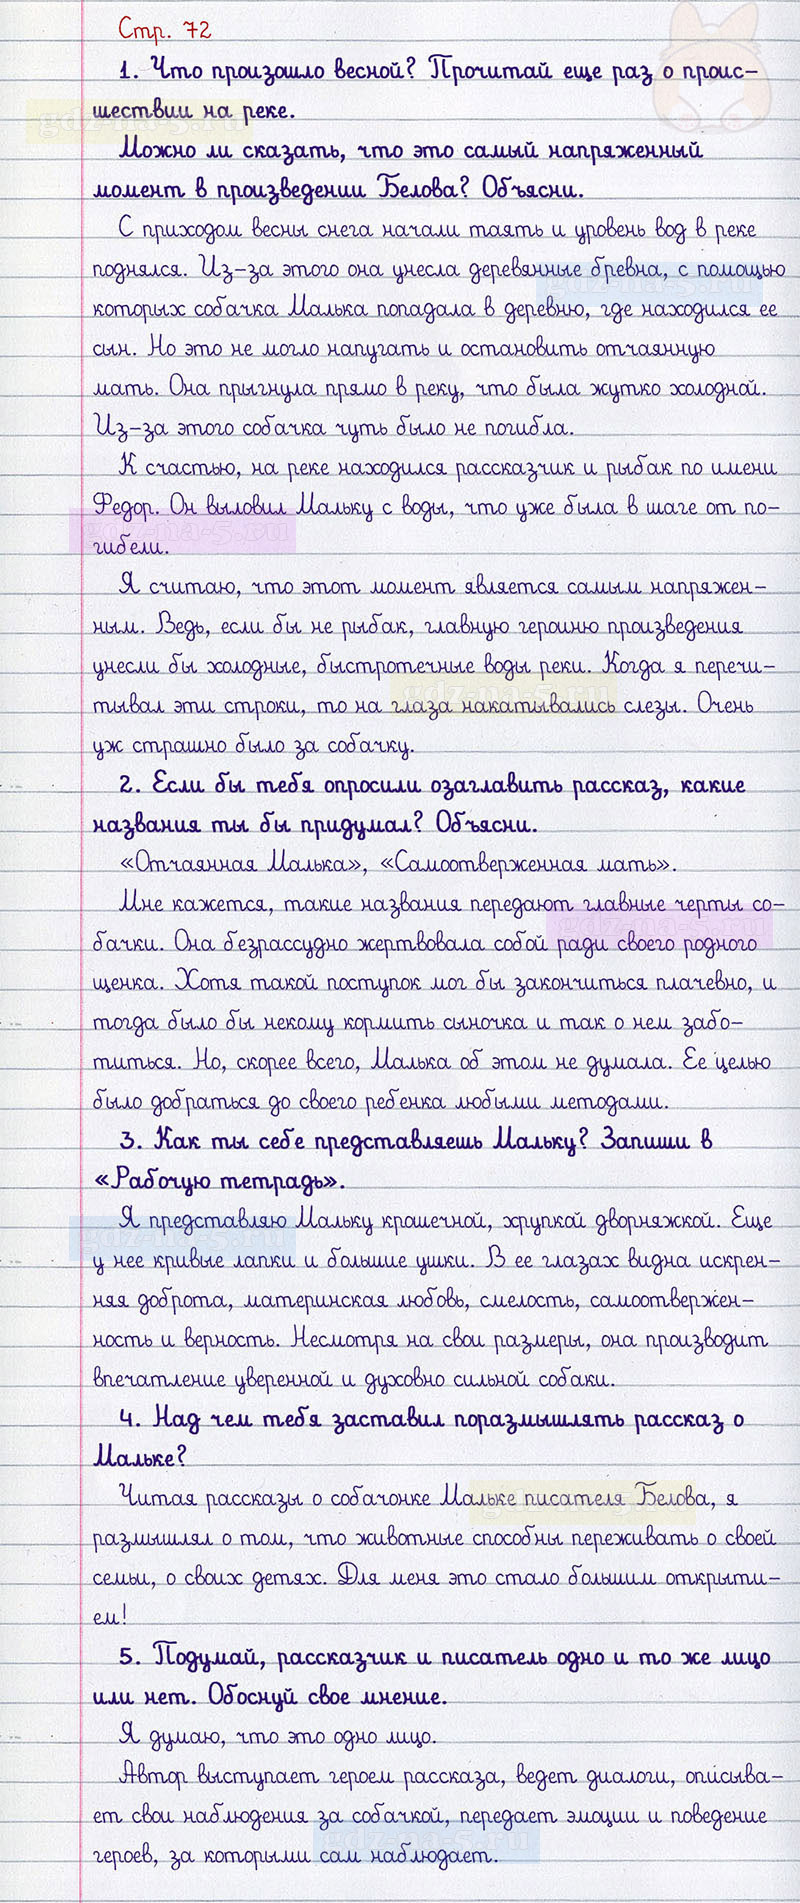 Стр. 72
1. Что произошло весной? Прочитай еще раз о проис-
шествии на реке.
gdz-na-5.ru
Можно ли сказать, что это самый напряженный
момент в произведении Белова? Объясни.
С приходом весны снега начали таять и уровень вод в реке
поднялся. Из-за этого она унесла деревянные бревна, с помощью
gdz-na-5.ru
которых собачка Малька попадала в деревню, где находился ее
сын. Но это не могло напугать и остановить отчаянную
мать. Она прыгнула прямо в реку, что была жутко холодной.
Из-за этого собачка чуть было не погибла.
К счастью, на реке находился рассказчик и рыбак по имени
Федор. Он выловил Мальку с воды, что уже была в шаге от по-
gdz-na-5.ru
гибели.
Я считаю, что этот момент является самым напряжен-
ным. Ведь, если бы не рыбак, главную героиню произведения
унесли бы холодные, быстротечные воды реки. Когда я перечи-
gdz-na-5.ru
тывал эти строки, то на глаза накатывались слезы. Очень
уж страшно было за собачку.
2. Если бы тебя опросили озаглавить рассказ, какие
названия ты бы придумал? Объясни.
«Отчаянная Малька», «Самоотверженная мать».
Мне кажется, такие названия передают главные черты со-
gdz-na-5.ru
бачки. Она безрассудно жертвовала собой ради своего родного
щенка. Хотя такой поступок мог бы закончиться плачевно, и
тогда было бы некому кормить сыночка и так о нем забо-
титься. Но, скорее всего, Малька об этом не думала. Ее целью
было добраться до своего ребенка любыми методами.
3. Как ты себе представляешь Мальку? Запиши в
«Рабочую тетрадь».
Я представляю Мальку крошечной, хрупкой дворняжкой. Еще
gdz-na-5.ru
у нее кривые лапки и большие ушки. В ее глазах видна искрен-
няя доброта, материнская любовь, смелость, самоотвержен-
ность и верность. Несмотря на свои размеры, она производит
впечатление уверенной и духовно сильной собаки.
4. Над чем тебя заставил поразмышлять рассказ о
Мальке?
Читая рассказы о собачонке Мальке писателя Белова, я
gdz-na-5.ru
размышлял о том, что животные способны переживать о своей
семьи, о своих детях. Для меня это стало большим открыти-
ем!
5. Подумай, рассказчик и писатель одно и то же лицо
или нет. Обоснуй свое мнение.
Я думаю, что это одно лицо.
Автор выступает героем рассказа, ведет диалоги, описыва-
ет свои наблюдения за собачкой, передает эмоции и поведение
gdz-na-5.ru
героев, за которыми сам наблюдает.